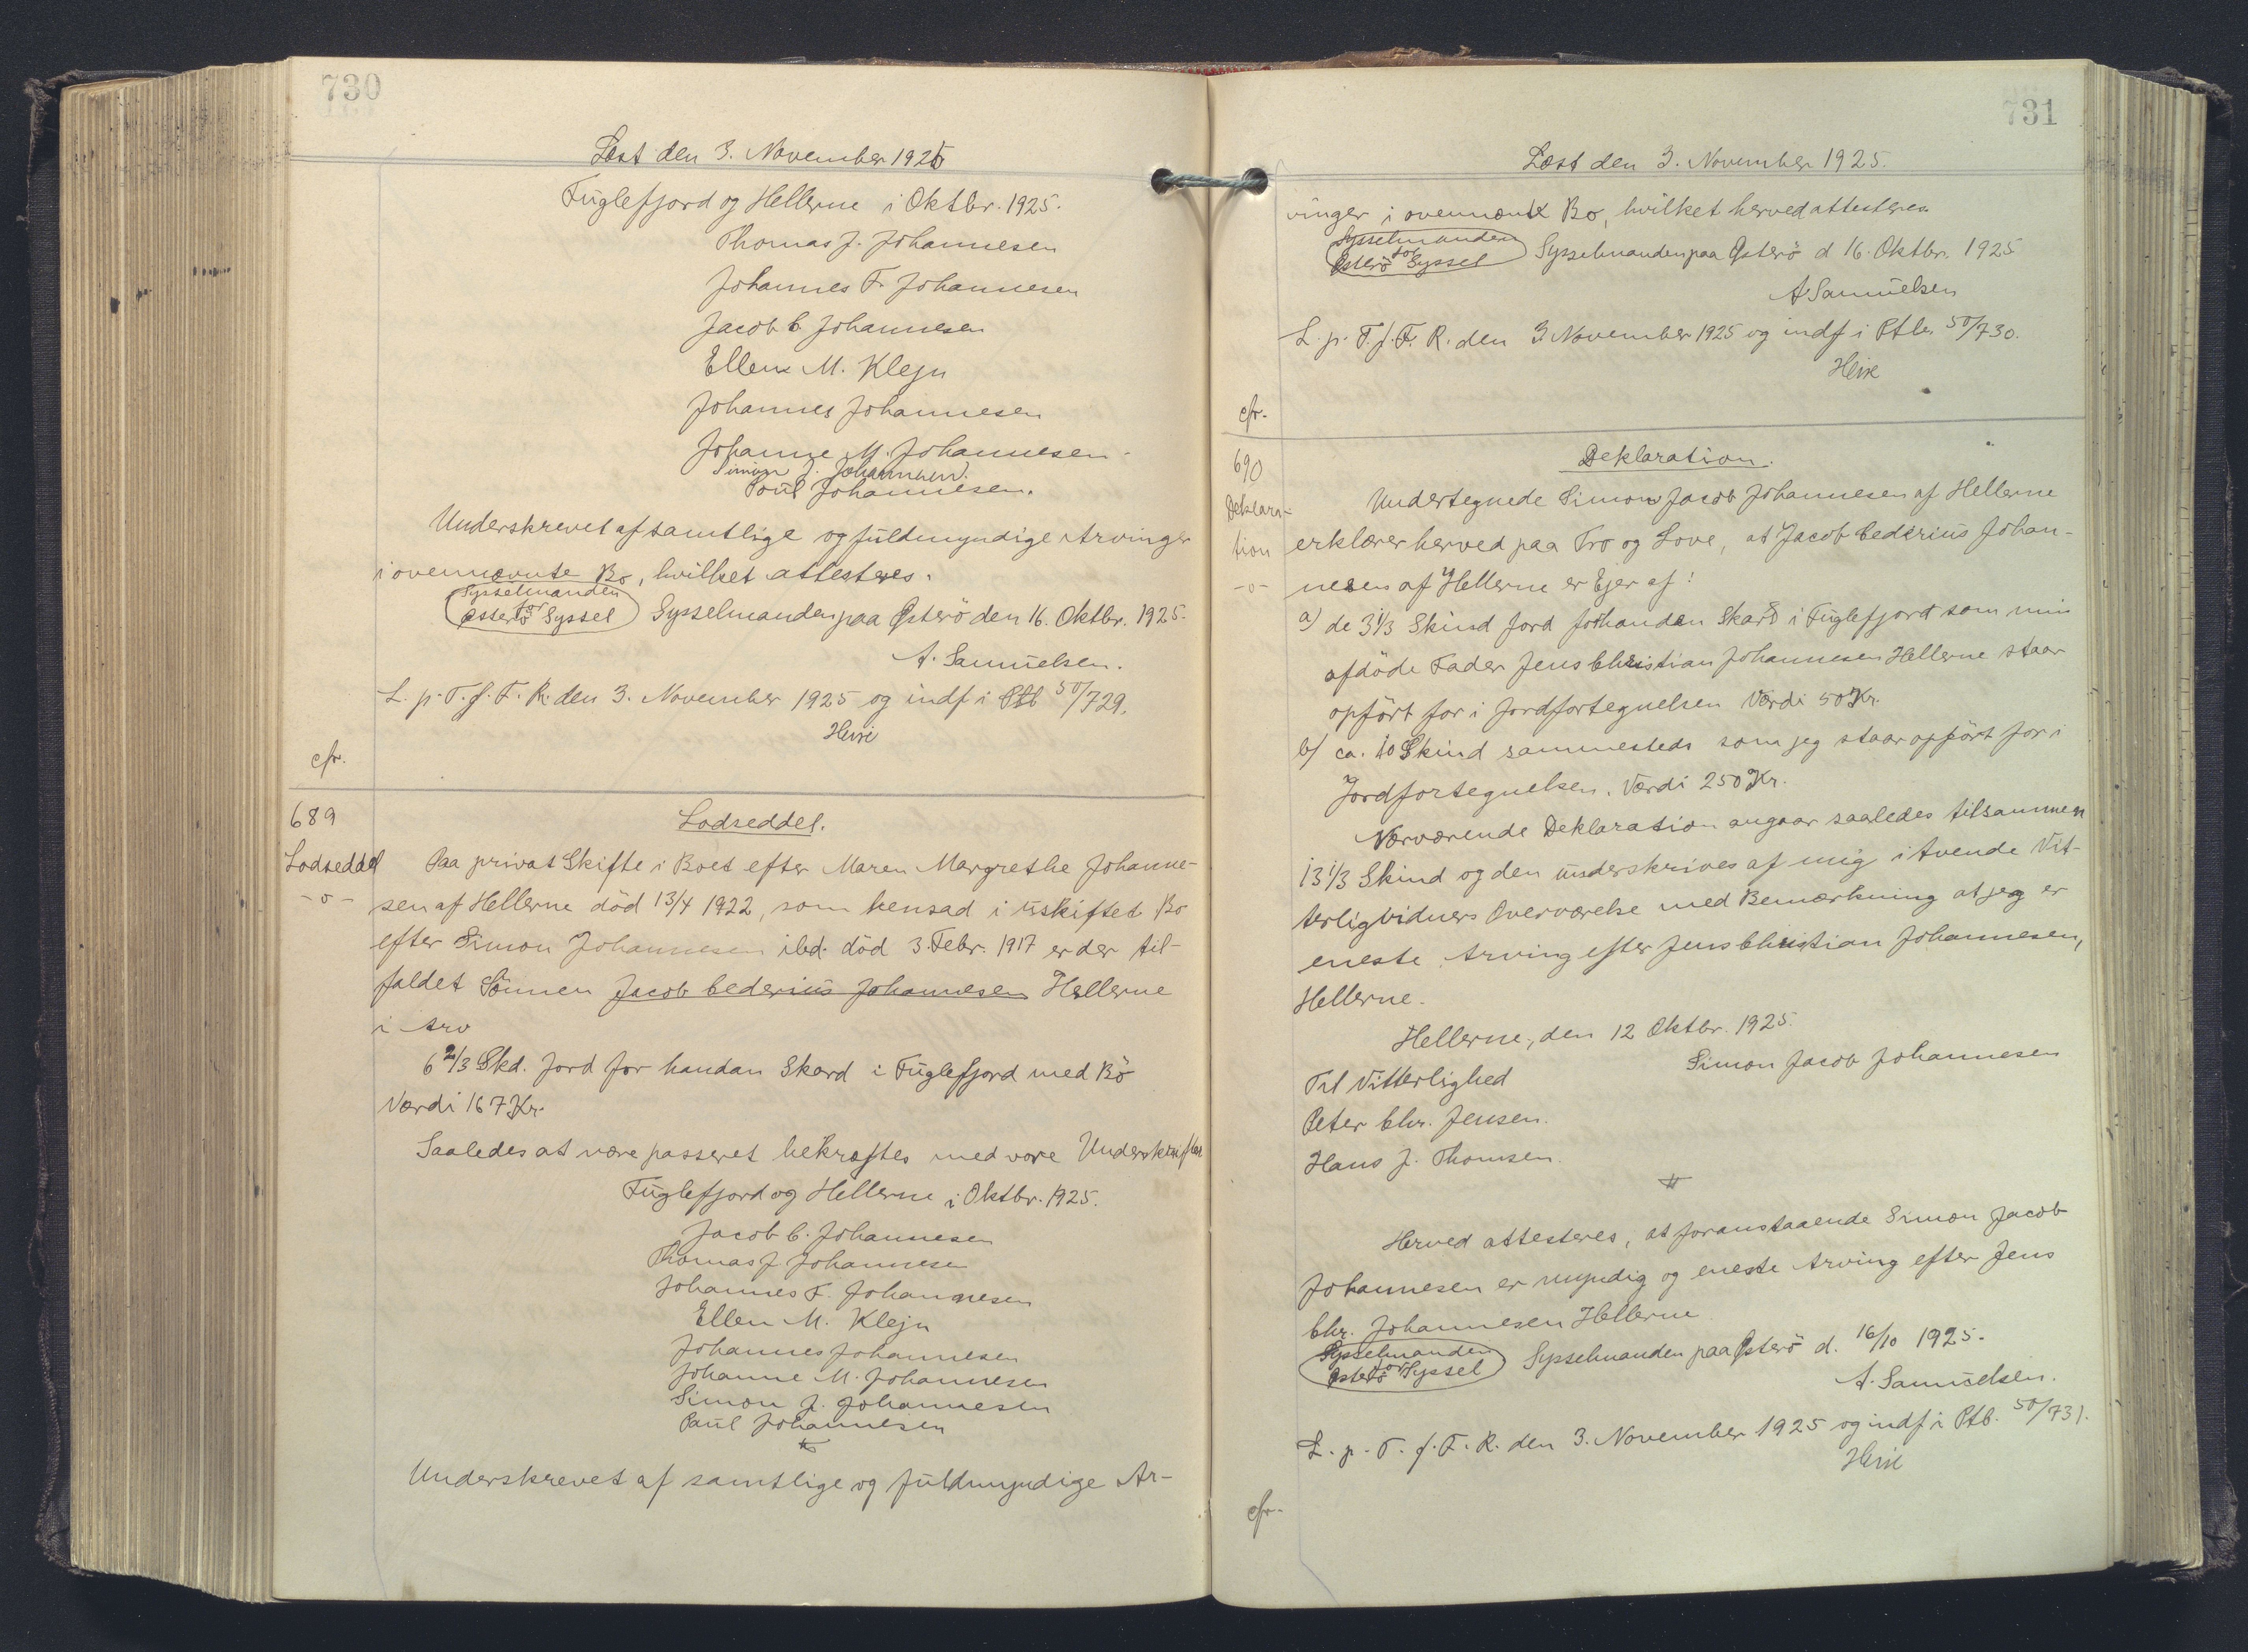 730
Læst den 3. November 1925
Fuglefjord og Hellerne i Oktbr. 1925.
Thomas J. Johannesen
Johannes F. Johannesen
Jacob C. Johannesen
Ellen M. Klejn
Johannes Johannesen
Johanne M. Johannesen
Simon J. Johannesen.
Poul Johannesen.
Underskrevet af samtlige og fuldmyndige Arvinger
i ovennævnte Bo, hvilket attesteres.
Sysselmanden
for
Østerö Syssel
Sysselmanden paa Østerö den 16. Oktbr. 1925.
A. Samuelsen.
L. p. T. f. F. R. den 3. November 1925 og indf i Ptb 50/729.
cfr.
689
Lodseddel
-o-
Lodseddel.
Paa privat Skifte i Boet efter Maren Margrethe Johanne-
sen af Hellerne död 13/4 1922, som hensad i uskiftet Bo
efter Simon Johannesen ibd. död 3. Febr. 1917 er der til-
faldet Sönnen Jacob Cederius Johannesen Hellerne
i Arv
6 2/3 Skd. Jord for handan Skard i Fuglefjord med Bö
Værdi 167 Kr.
Saaledes at være passeret bekræftes med vore Underskrifter
Fuglefjord og Hellerne i Oktbr. 1925.
Jacob C. Johannesen
Thomas J Johannesen
Johannes F. Johannesen
Ellen M. Klejn
Johannes Johannesen
Johanne M. Johannesen
Simon J. Johannesen
Paul Johannesen
Underskrevet af samtlige og fuldmyndige Ar-
731
Læst den 3. November 1925.
vinger i ovennævnte Bo, hvilket herved attesteres.
Sysselmanden
for
Østerö Syssel
Sysselmanden paa Østerö d 16. Oktbr. 1925
A Samuelsen
L. p. T. f. F. R. den 3 November 1925 og indf i Ptb. 50/730.
cfr.
690
Deklara-
tion
-o-
Deklaration.
Undertegnede Simon Jacob Johannesen af Hellerne
erklærer herved paa Tro og Love, at Jacob Cederius Johan-
nesen af Hellerne er Ejer af:
a) de 3 1/3 Skind Jord forhandan Skard i Fuglefjord som min
afdöde Fader Jens Christian Johannesen Hellerne staar
opfört for i Jordfortegnelsen Værdi 50 Kr.
b) ca. 10 Skind sammesteds som jeg staar opfört for i
Jordfortegnelsen. Værdi 250 Kr.
Nærværende Deklaration angaar saaledes tilsammen
13 1/3 Skind og den underskrives af mig i tvende Vit-
terligvidners Overværelse med Bemærkning at jeg er
eneste Arving efter Jens Christian Johannesen,
Hellerne.
Hellerne, den 12 Oktbr. 1925.
Simon Jacob Johannesen
Til Vitterlighed
Peter Chr. Jensen.
Hans J. Thomsen.
Herved attesteres, at foranstaaende Simon Jacob
Johannesen er myndig og eneste Arving efter Jens
Chr. Johannesen Hellerne
Sysselmanden
for
Østerö Syssel
Sysselmanden paa Østerö d. 16/10 1925.
A. Samuelsen.
L. p. T. f. F. R. den 3. November 1925 og indf i Ptb. 50/731.
cfr.